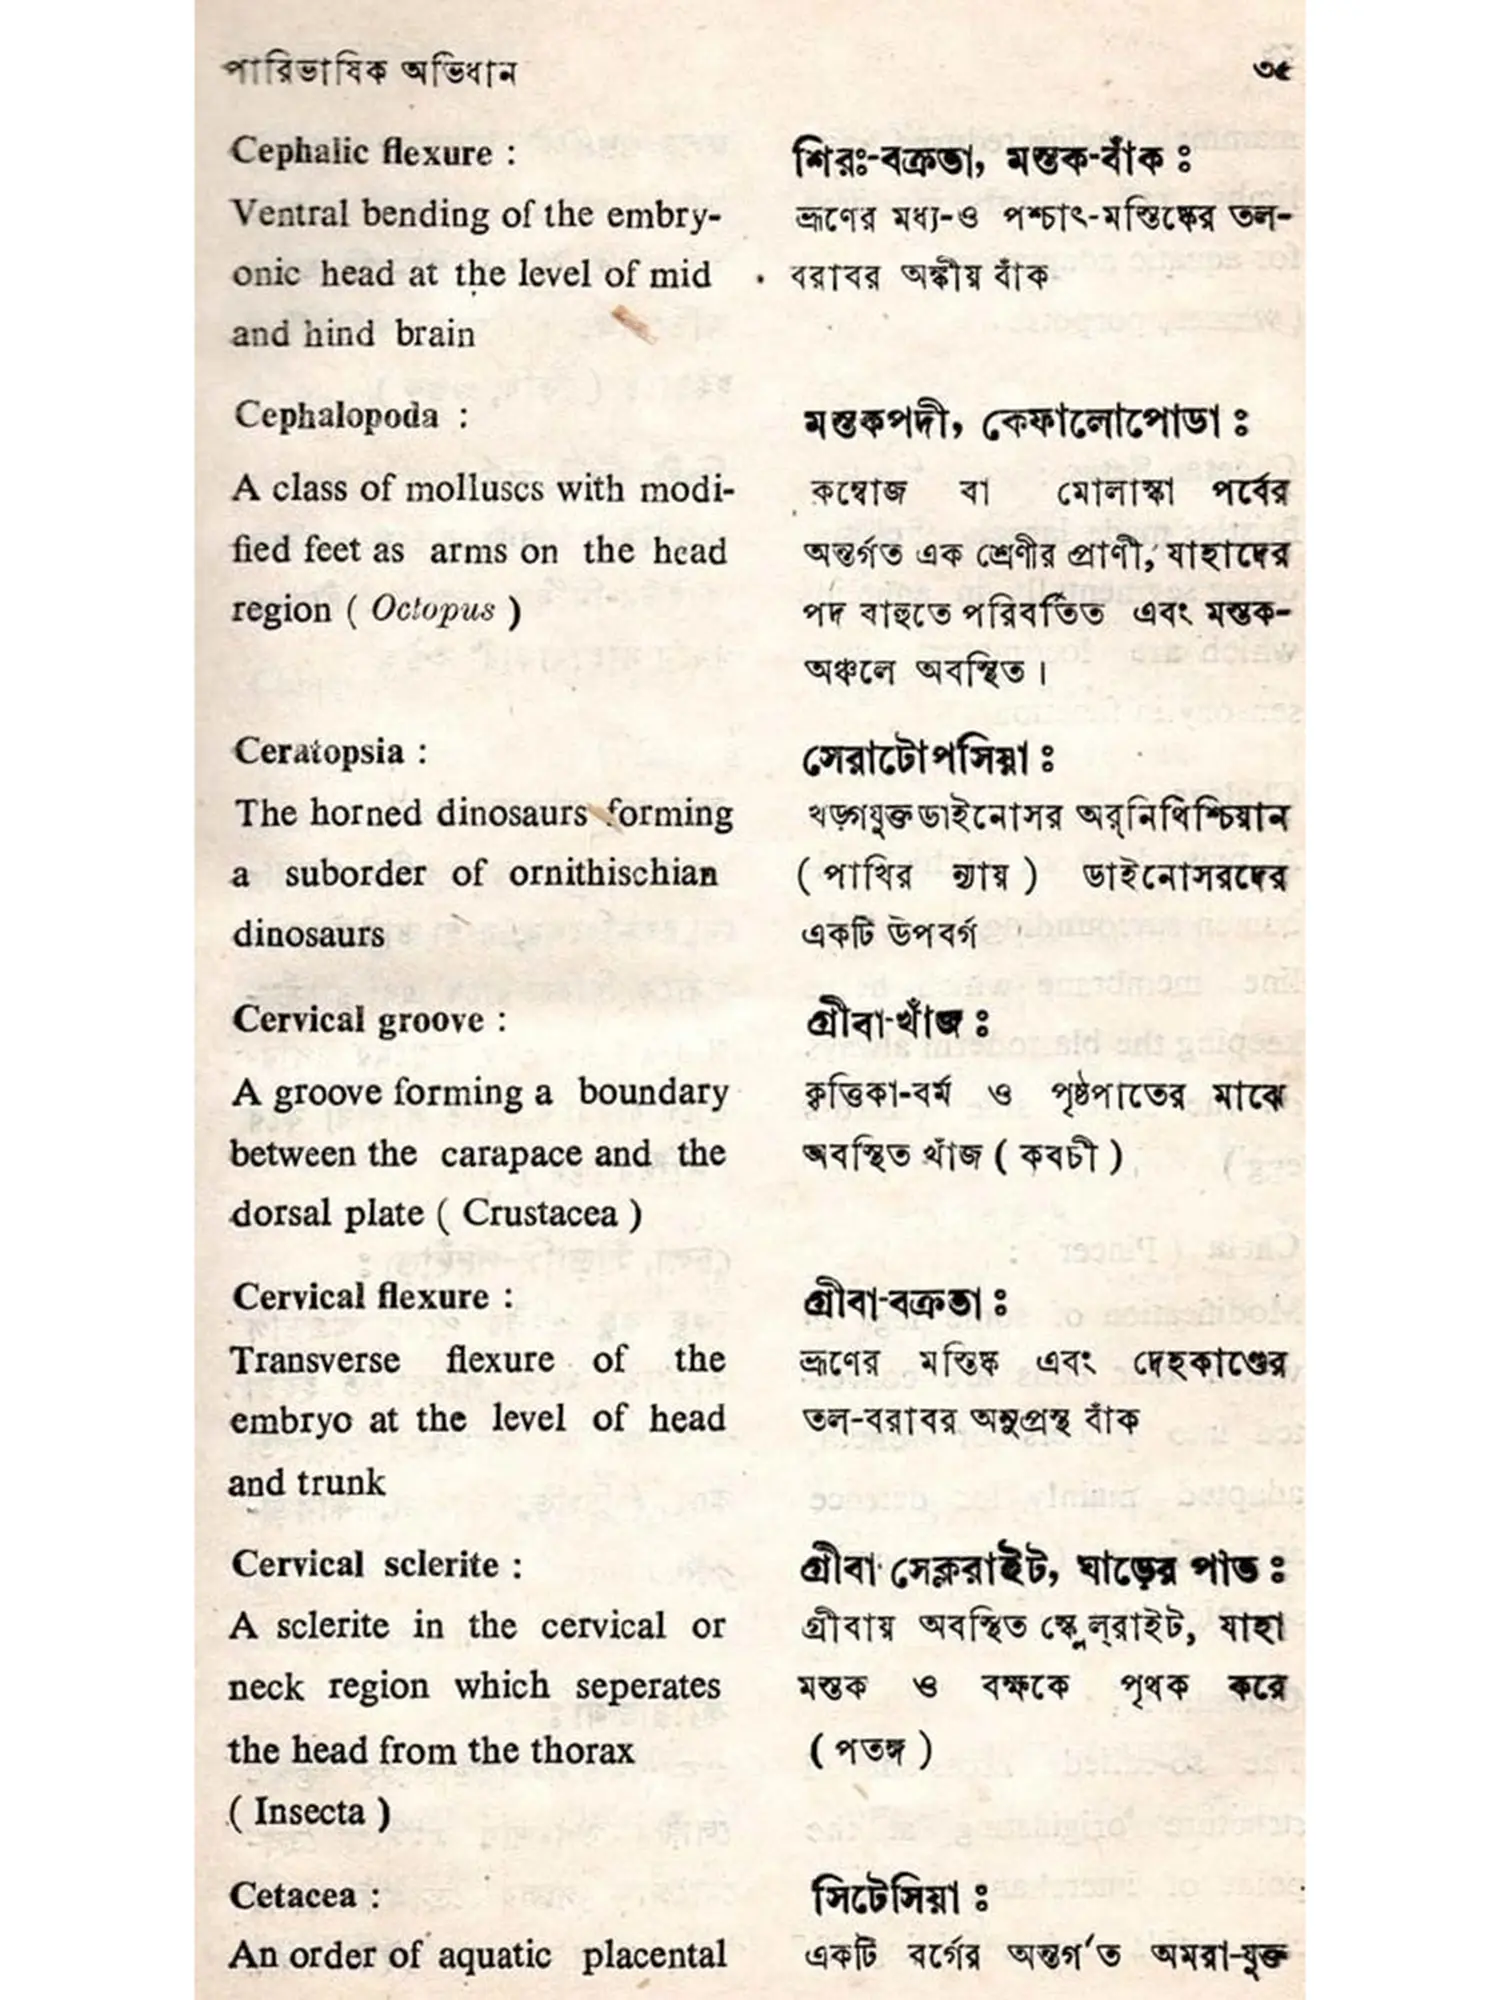 পারিভাষিক অভিধান ৩৫
Cephalic flexure :
Ventral bending of the embry-
onic head at the level of mid
and hind brain
শিরঃ-বক্রতা, মস্তক-বাঁক ঃ
ভ্রূণের মধ্য-ও পশ্চাৎ-মস্তিষ্কের তল-
বরাবর অঙ্কীয় বাঁক
Cephalopoda :
A class of molluscs with modi-
fied feet as arms on the head
region ( Octopus )
মস্তকপদী, কেফালোপোডা ঃ
কম্বোজ বা মোলাস্কা পর্বের
অন্তর্গত এক শ্রেণীর প্রাণী, যাহাদের
পদ বাহুতে পরিবর্তিত এবং মস্তক-
অঞ্চলে অবস্থিত।
Ceratopsia :
The horned dinosaurs forming
a suborder of ornithischian
dinosaurs
সেরাটোপসিয়া ঃ
খড়্গযুক্ত ডাইনোসর অর্‌নিথিশ্চিয়ান
( পাখির ন্যায় ) ডাইনোসরদের
একটি উপবর্গ
Cervical groove :
A groove forming a boundary
between the carapace and the
dorsal plate ( Crustacea )
গ্রীবা-খাঁজ ঃ
কৃত্তিকা-বর্ম ও পৃষ্ঠপাতের মাঝে
অবস্থিত খাঁজ ( কবচী )
Cervical flexure :
Transverse flexure of the
embryo at the level of head
and trunk
গ্রীবা-বক্রতা ঃ
ভ্রূণের মস্তিষ্ক এবং দেহকাণ্ডের
তল-বরাবর অনুপ্রস্থ বাঁক
Cervical sclerite :
A sclerite in the cervical or
neck region which seperates
the head from the thorax
( Insecta )
গ্রীবা সেক্লরাইট, ঘাড়ের পাত ঃ
গ্রীবায় অবস্থিত স্ক্লেল্‌রাইট, যাহা
মস্তক ও বক্ষকে পৃথক করে
( পতঙ্গ )
Cetacea :
An order of aquatic placental
সিটেসিয়া ঃ
একটি বর্গের অন্তর্গত অমরা-যুক্ত